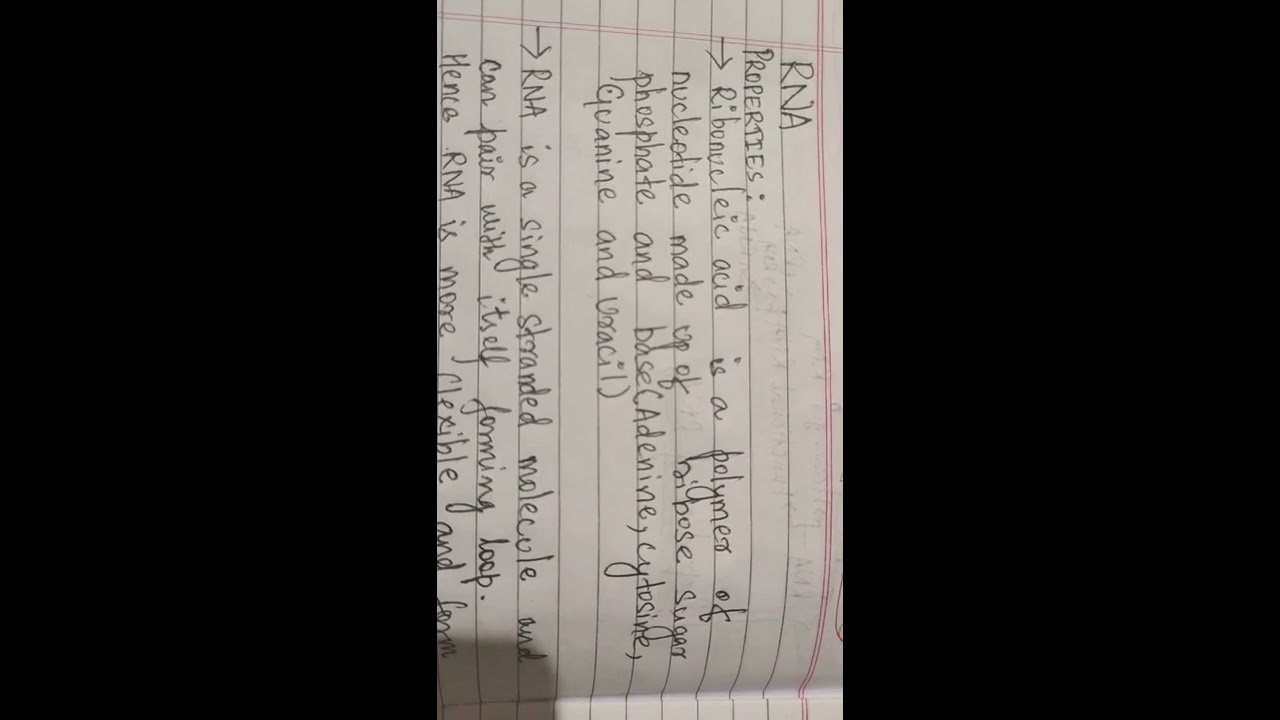 RNA
PROPERTIES:
→ Ribonucleic acid is a polymer of
nucleotide made up of ribose sugar
phosphate and base(Adenine, cytosine,
Guanine and Uracil)
→ RNA is a single stranded molecule and
can pair with itself forming loop.
Hence RNA is more flexible and form